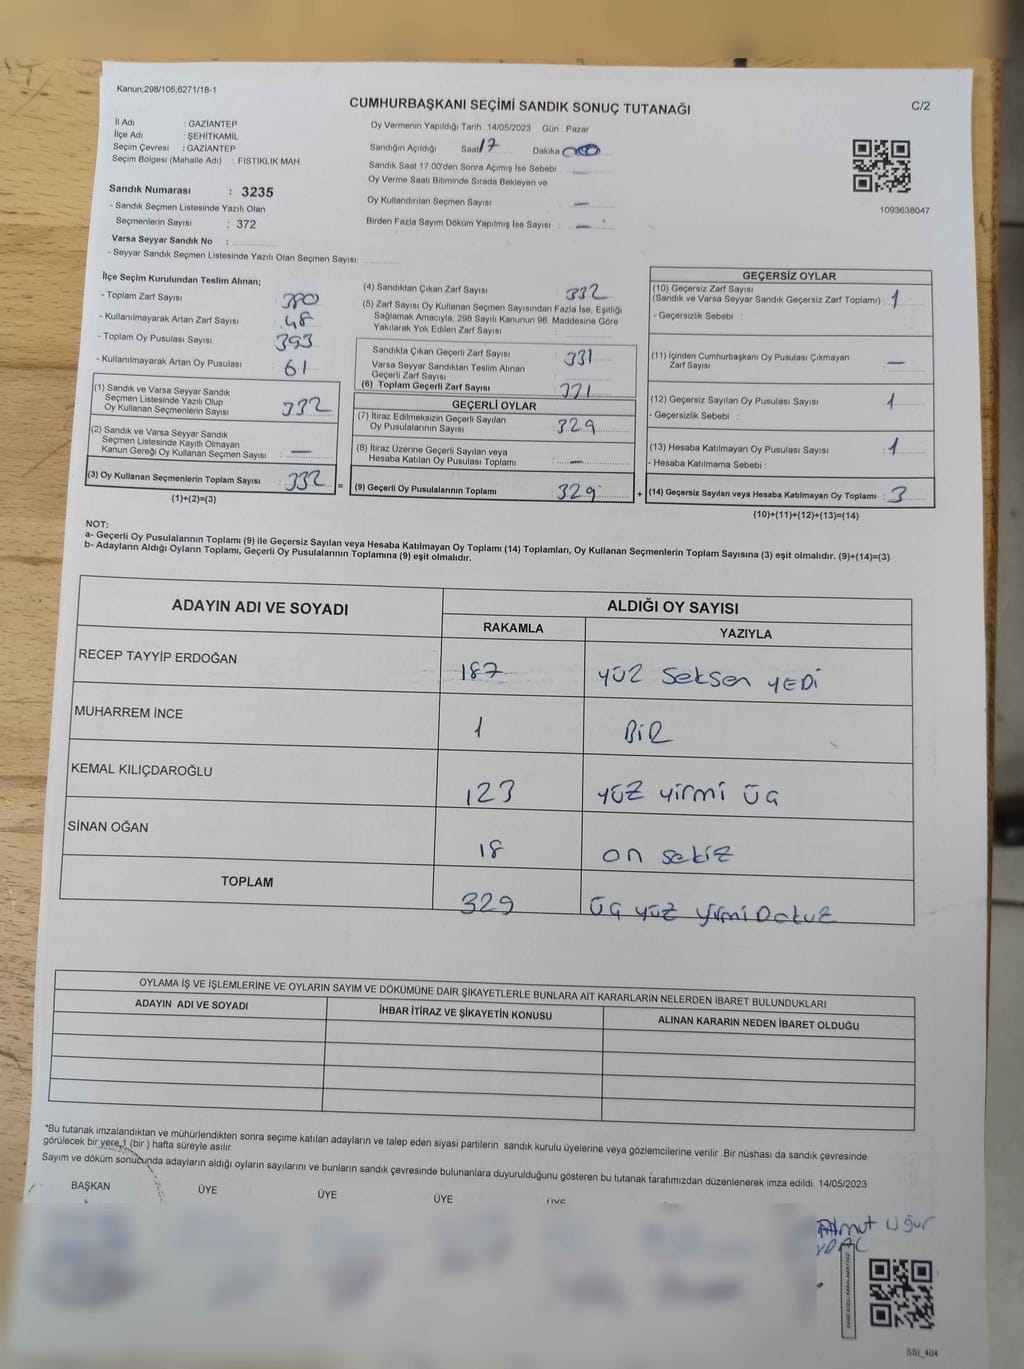 Kanun,298/105,6271/18-1
CUMHURBAŞKANI SEÇİMİ SANDIK SONUÇ TUTANAĞI
C/2
İl Adı : GAZİANTEP
İlçe Adı : ŞEHİTKAMİL
Seçim Çevresi : GAZİANTEP
Seçim Bölgesi (Mahalle Adı) : FISTIKLIK MAH.
Sandık Numarası : 3235
- Sandık Seçmen Listesinde Yazılı Olan
Seçmenlerin Sayısı : 372
Varsa Seyyar Sandık No :
- Seyyar Sandık Seçmen Listesinde Yazılı Olan Seçmen Sayısı:
Oy Vermenin Yapıldığı Tarih 14/05/2023 Gün : Pazar
Sandığın Açıldığı Saat 17 Dakika
Sandık Saat 17.00'den Sonra Açımış İse Sebebi
Oy Verme Saati Bitiminde Sırada Bekleyen ve
Oy Kullandırılan Seçmen Sayısı : —
Birden Fazla Sayım Döküm Yapılmış İse Sayısı : —
1093638047
İlçe Seçim Kurulundan Teslim Alınan;
- Toplam Zarf Sayısı : 380
- Kullanılmayarak Artan Zarf Sayısı : 48
- Toplam Oy Pusulası Sayısı : 393
- Kullanılmayarak Artan Oy Pusulası : 61
(1) Sandık ve Varsa Seyyar Sandık
Seçmen Listesinde Yazılı Olup
Oy Kullanan Seçmenlerin Sayısı : 332
(2) Sandık ve Varsa Seyyar Sandık
Seçmen Listesinde Kayıtlı Olmayan
Kanun Gereği Oy Kullanan Seçmen Sayısı : —
(3) Oy Kullanan Seçmenlerin Toplam Sayısı : 332
(1)+(2)=(3)
(4) Sandıktan Çıkan Zarf Sayısı : 332
(5) Zarf Sayısı Oy Kullanan Seçmen Sayısından Fazla İse, Eşitliği
Sağlamak Amacıyla, 298 Sayılı Kanunun 98. Maddesine Göre
Yakılarak Yok Edilen Zarf Sayısı :
Sandıkta Çıkan Geçerli Zarf Sayısı : 331
Varsa Seyyar Sandıktan Teslim Alınan
Geçerli Zarf Sayısı :
(6) Toplam Geçerli Zarf Sayısı : 331
GEÇERLİ OYLAR
(7) İtiraz Edilmeksizin Geçerli Sayılan
Oy Pusulalarının Sayısı : 329
(8) İtiraz Üzerine Geçerli Sayılan veya
Hesaba Katılan Oy Pusulası Toplamı : —
= (9) Geçerli Oy Pusulalarının Toplamı : 329
GEÇERSİZ OYLAR
(10) Geçersiz Zarf Sayısı
(Sandık ve Varsa Seyyar Sandık Geçersiz Zarf Toplamı) : 1
- Geçersizlik Sebebi :
(11) İçinden Cumhurbaşkanı Oy Pusulası Çıkmayan
Zarf Sayısı : —
(12) Geçersiz Sayılan Oy Pusulası Sayısı : 1
- Geçersizlik Sebebi :
(13) Hesaba Katılmayan Oy Pusulası Sayısı : 1
- Hesaba Katılmama Sebebi :
+ (14) Geçersiz Sayılan veya Hesaba Katılmayan Oy Toplamı : 3
(10)+(11)+(12)+(13)=(14)
NOT:
a- Geçerli Oy Pusulalarının Toplamı (9) ile Geçersiz Sayılan veya Hesaba Katılmayan Oy Toplamı (14) Toplamları, Oy Kullanan Seçmenlerin Toplam Sayısına (3) eşit olmalıdır. (9)+(14)=(3)
b- Adayların Aldığı Oyların Toplamı, Geçerli Oy Pusulalarının Toplamına (9) eşit olmalıdır.
ADAYIN ADI VE SOYADI
ALDIĞI OY SAYISI
RAKAMLA YAZIYLA
RECEP TAYYİP ERDOĞAN 187 YÜZ Seksen YEDİ
MUHARREM İNCE 1 BİR
KEMAL KILIÇDAROĞLU 123 YÜZ Yirmi ÜÇ
SİNAN OĞAN 18 on sekiz
TOPLAM 329 ÜÇ YÜZ YİRMİ Dokuz
OYLAMA İŞ VE İŞLEMLERİNE VE OYLARIN SAYIM VE DÖKÜMÜNE DAİR ŞİKAYETLERLE BUNLARA AİT KARARLARIN NELERDEN İBARET BULUNDUKLARI
ADAYIN ADI VE SOYADI İHBAR İTİRAZ VE ŞİKAYETİN KONUSU ALINAN KARARIN NEDEN İBARET OLDUĞU
"Bu tutanak imzalandıktan ve mühürlendikten sonra seçime katılan adayların ve talep eden siyasi partilerin sandık kurulu üyelerine veya gözlemcilerine verilir .Bir nüshası da sandık çevresinde
görülecek bir yere 1 (bir ) hafta süreyle asılır.
Sayım ve döküm sonucunda adayların aldığı oyların sayılarını ve bunların sandık çevresinde bulunanlara duyurulduğunu gösteren bu tutanak tarafımızdan düzenlenerek imza edildi. 14/05/2023
BAŞKAN ÜYE ÜYE ÜYE ÜYE
Uğur
SSI_404